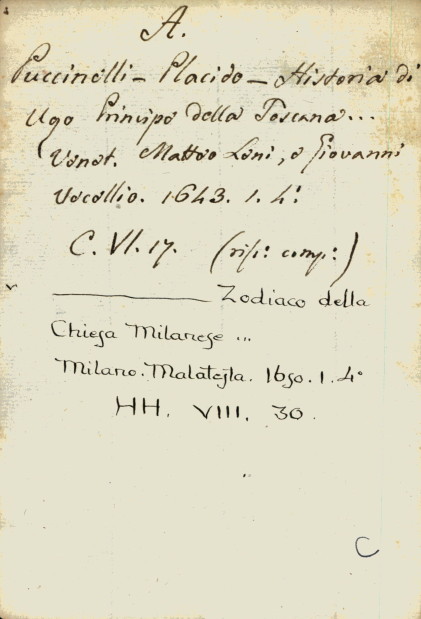 A.
Puccinelli – Placido – Historia di
Ugo Principe della Toscana...
Venet. Matteo Leni, e Giovanni
Vecellio. 1643. 1. 4º
C. VI. 17. (risp: comp:)
Zodiaco della
Chiesa Milanese ...
Milano. Malatesta. 1650. 1. 4º
HH. VIII. 30.
C